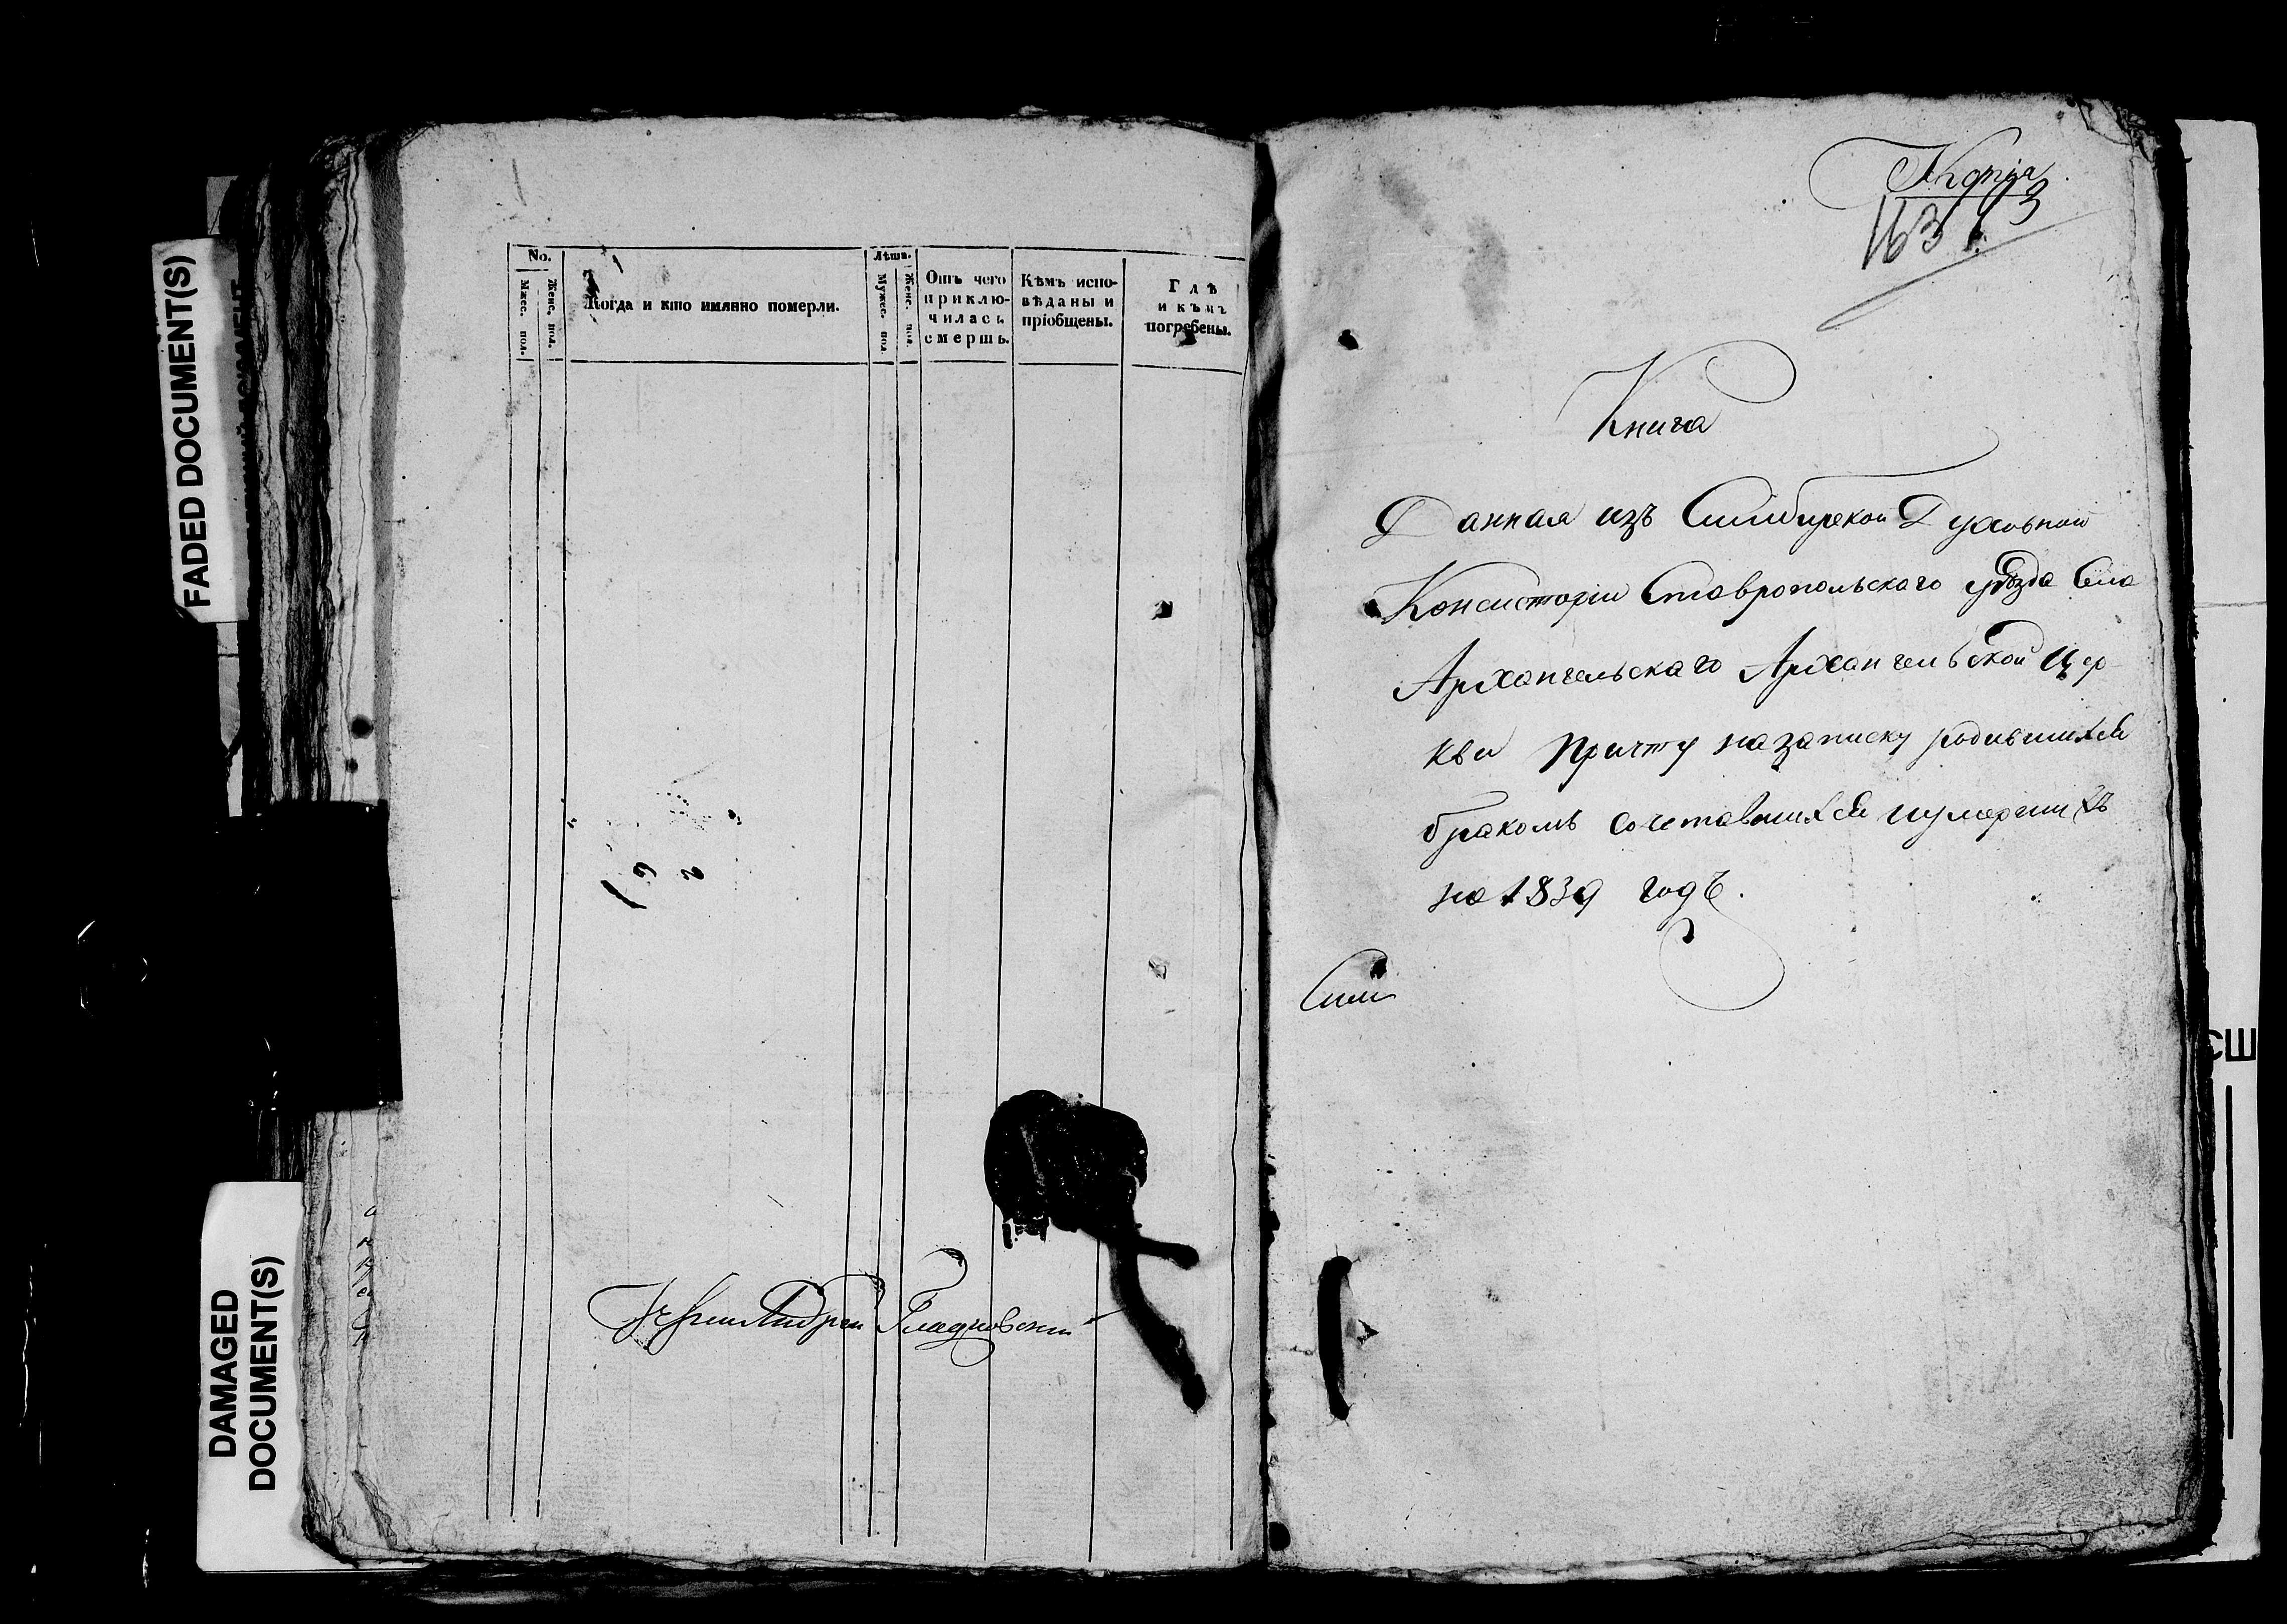 FADED DOCUMENT(S)
DAMAGED
DOCUMENT(S)
No.
Мжес. пол.
Женс. пол.
Когда и кто имянно померли.
Лѣта.
Мужес. пол.
Женс. пол.
Отъ чего
приклю-
чилась
смерть.
Кѣмъ испо-
вѣданы и
пріобщены.
Гдѣ
и кѣмъ
погребены.
Андрей
Копія
163
Книга
Данная изъ Симбирской Духовной
Консисторіи Ставропольскаго уѣзда Села
Архангельскаго Архангельской Цер-
кви Причту на записку родившихся
бракомъ сочетавшихся и умершихъ
на 1839 годъ.
Сим